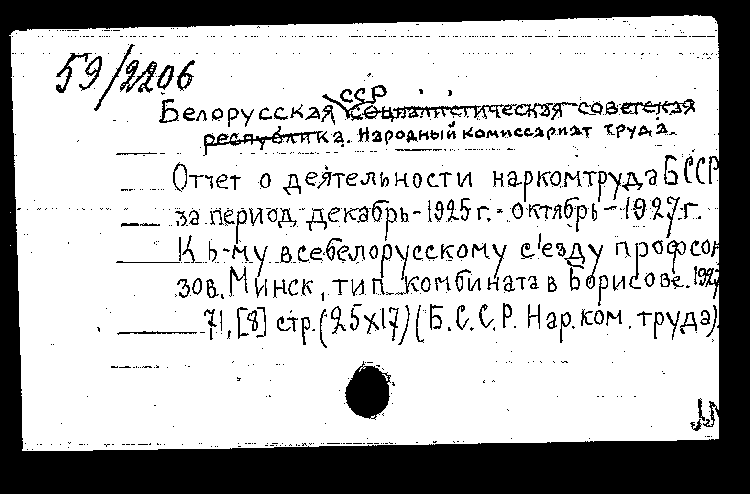 59/2206
ССР
Белорусская социалистическая советская
республика. Народный комиссариат труда.
Отчет о деятельности наркомтруда БССР
за период декабрь-1925 г. - октябрь-1927 г.
К -му всебелорусскому с'езду профсою
зов. Минск, тип. комбината в Борисове. 1927
71, [8] стр. (25х17) (Б.С.С.Р. Нар. ком. труда).